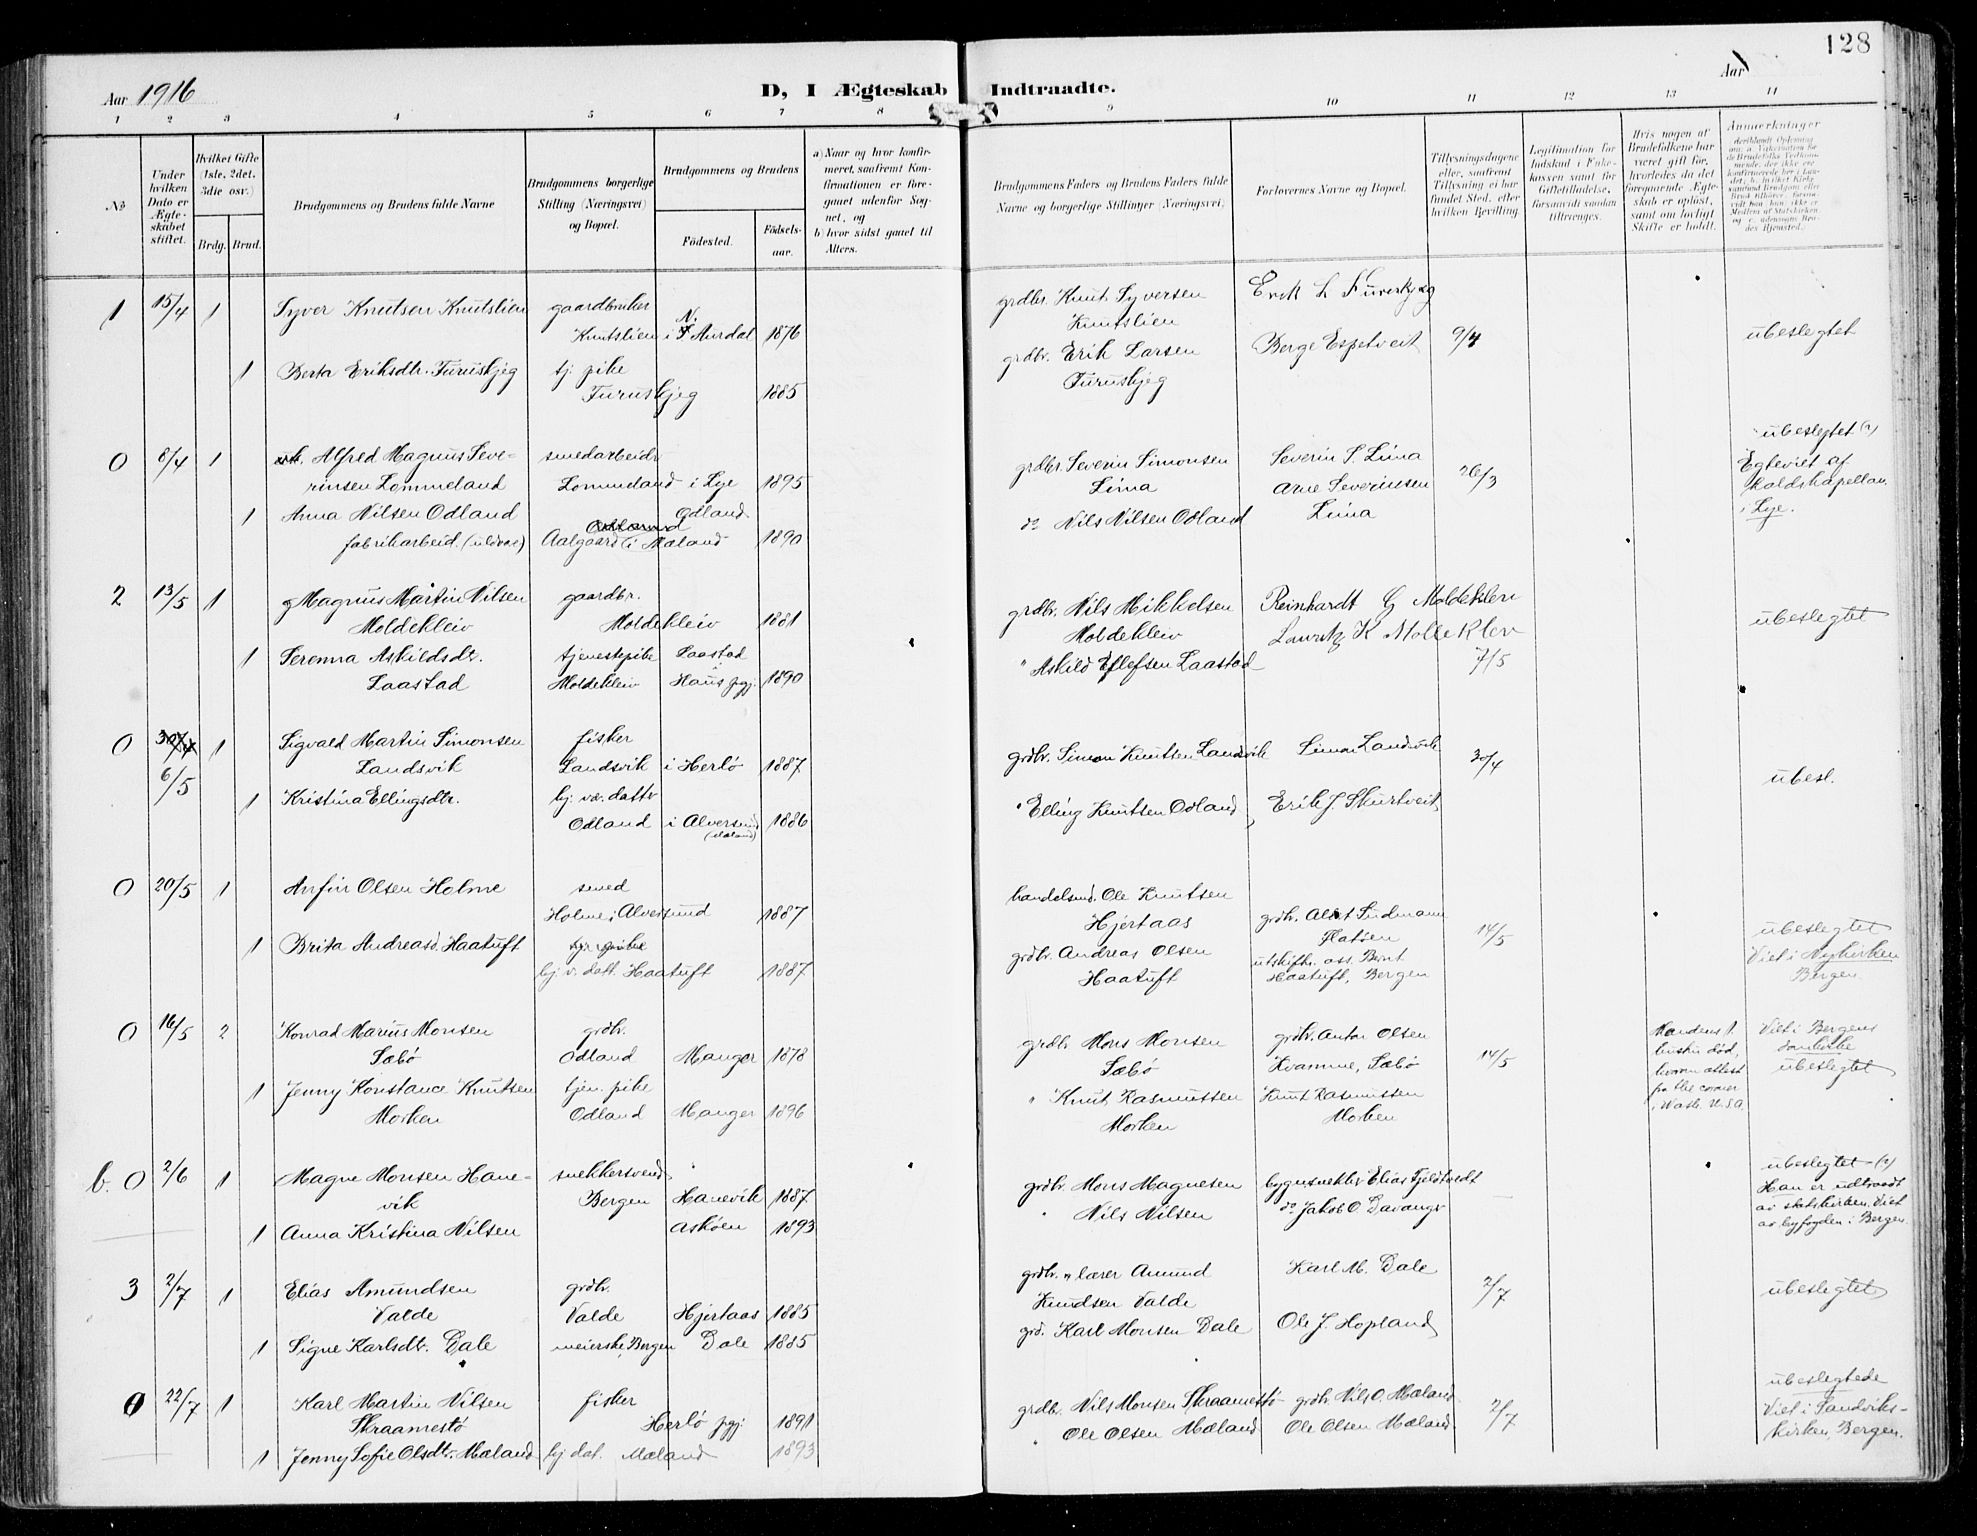 128
Aar 1916
D, I Ægteskab Indtraadte.
Aar
1 2 3 4 5 6 7 8 9 10 11 12 13 14
No
Under hvilken Dato er Ægteskabet stiftet.
Hvilket Gifte (1ste, 2det, 3die osv.)
Brdg. Brud.
Brudgommens og Brudens fulde Navne
Brudgommens borgerlige Stilling (Næringsvei) og Bopæl.
Brudgommens og Brudens
Fødested.
Fødselsaar.
a) Naar og hvor konfirmeret, saafremt Konfirmationen er foregaaet udenfor Sognet, og
b) hvor sidst gaaet til Alters.
Brudgommens Faders og Brudens Faders fulde Navne og borgerlige Stillinger (Næringsvei).
Forlovernes Navne og Bopæl.
Tillysningsdagene eller, saafremt Tillysning ei har fundet Sted, efter hvilken Bevilling.
Legitimation for Indskud i Enkekassen samt for Giftetilladelse, forsaavidt saadan tiltrænges.
Hvis nogen af Brudefolkene har været gift før, hvorledes da det foregaaende Ægteskab er opløst, samt om lovligt Skifte er holdt.
Anmerkninger
1 15/4 1 Syver Knutsen Knutslien gaardbruker
Knutslien i N. Aurdal 1876
grdbr. Knut Syversen
Knutslien
Erik L Furuskjeg
1 Berta Eriksdtr. Furuskjeg tj. pike
Furuskjeg 1885
grdbr. Erik Larsen
Furuskjeg
Berge Espetveit 9/4 ubeslegtet
0 8/4 1 Alfred Magnus Severinsen Lommeland
smedarbeidr
Lommeland i Lye 1895
grdbr. Severin Simonsen
Lima
Severin S. Lima
Arne Severinsen
Lima
26/3
ubeslegtet
Egteviet af
i Lye.
1 Anna Nilsen Odland
fabrikarbeid. Aalgaard
Odland
i Mæland 1890
do Nils Nilsen Odland
2 13/5 1 Magnus Martin Nilsen
Moldekleiv
gaardbr.
Moldekleiv 1881
grdbr. Nils Mikkelsen
Moldekleiv
Reinhardt G Moldeklev
Lauritz K Molleklev
7/5
ubeslegtet
1 Serenna Askildsdtr.
Laastad
tjenestepike
Moldekleiv
Laastad
Haus pgj. 1890
" Askild Ellefsen Laastad
0 30/4
6/5
1 Sigvald Martin Simonsen
Landsvik
fisker
Landsvik i Herlø 1887
grdbr. Simon Knutsen Landsvik
Simon Landsvik
30/4
ubesl.
1 Kristina Ellingsdtr.
hj. vær. dattr
Odland i Alversund
(Mæland)
1886
" Elling Knutsen Odland
Erik J. Skurtveit
0 20/5 1 Anfin Olsen Holme
smed
Holme i Alversund 1887
handelsmd. Ole Knutsen
Hjertaas
grdbr. Albt Sudmann
Flatøen
14/5
ubeslegtet
Viet i Nykirken
Bergen.
1 Brita Andreasd. Haatuft
hj. v. datt. Haatuft 1887
grdbr. Andreas Olsen
Haatuft
utskiftn. ass. Bernt
Haatuft, Bergen
0 16/5 2 Konrad Marius Monsen
Sæbø
grdbr.
Odland Manger 1878
grdbr Mons Monsen
Sæbø
grdbr. Anton Olsen
Kvamme, Sæbø
14/5
Mandens 1.
hustru død,
hvorom attest
fra the coroner
, Wash. U.S.A.
Viet i Bergens
domkirke
ubeslegtet
1 Jenny Konstance Knutsen
Morken
tjen. pike
Odland Manger 1896
" Knut Rasmussen
Morken
Knut Rasmussen
Morken
b. 0 2/6 1 Magne Monsen Hanevik
snekkersvend
Bergen Hanevik 1887
grdbr. Mons Magnesen
bygnsnekker Elias Fjeldtvedt
ubeslegtet
Han er udtraadt
av statskirken. Viet
av byfogden i Bergen.
1 Anna Kristina Nilsen
Askøen 1893
" Nils Nilsen
do Jakob O Davanger
3 2/7 1 Elias Amundsen
Valde
grdbr.
Valde Hjertaas 1885
grdbr. " lærer Amund
Knudsen Valde
Karl M. Dale
2/7
ubeslegtet
1 Signe Karlsdtr. Dale
meierske, Bergen Dale 1885
grd. Karl Monsen Dale
Ole J. Hopland
0 22/7 1 Karl Martin Nilsen
Skraamestø
fisker
Herlø pgj. 1891
grdb. Nils Monsen Skraamestø
grdbr Nils O. Mæland
2/7
ubeslegtede
Viet i Sandvikskirken, Bergen.
1 Jenny Sofie Olsdtr. Mæland
hj dat. Mæland 1893
" Ole Olsen Mæland
Ole Olsen Mæland